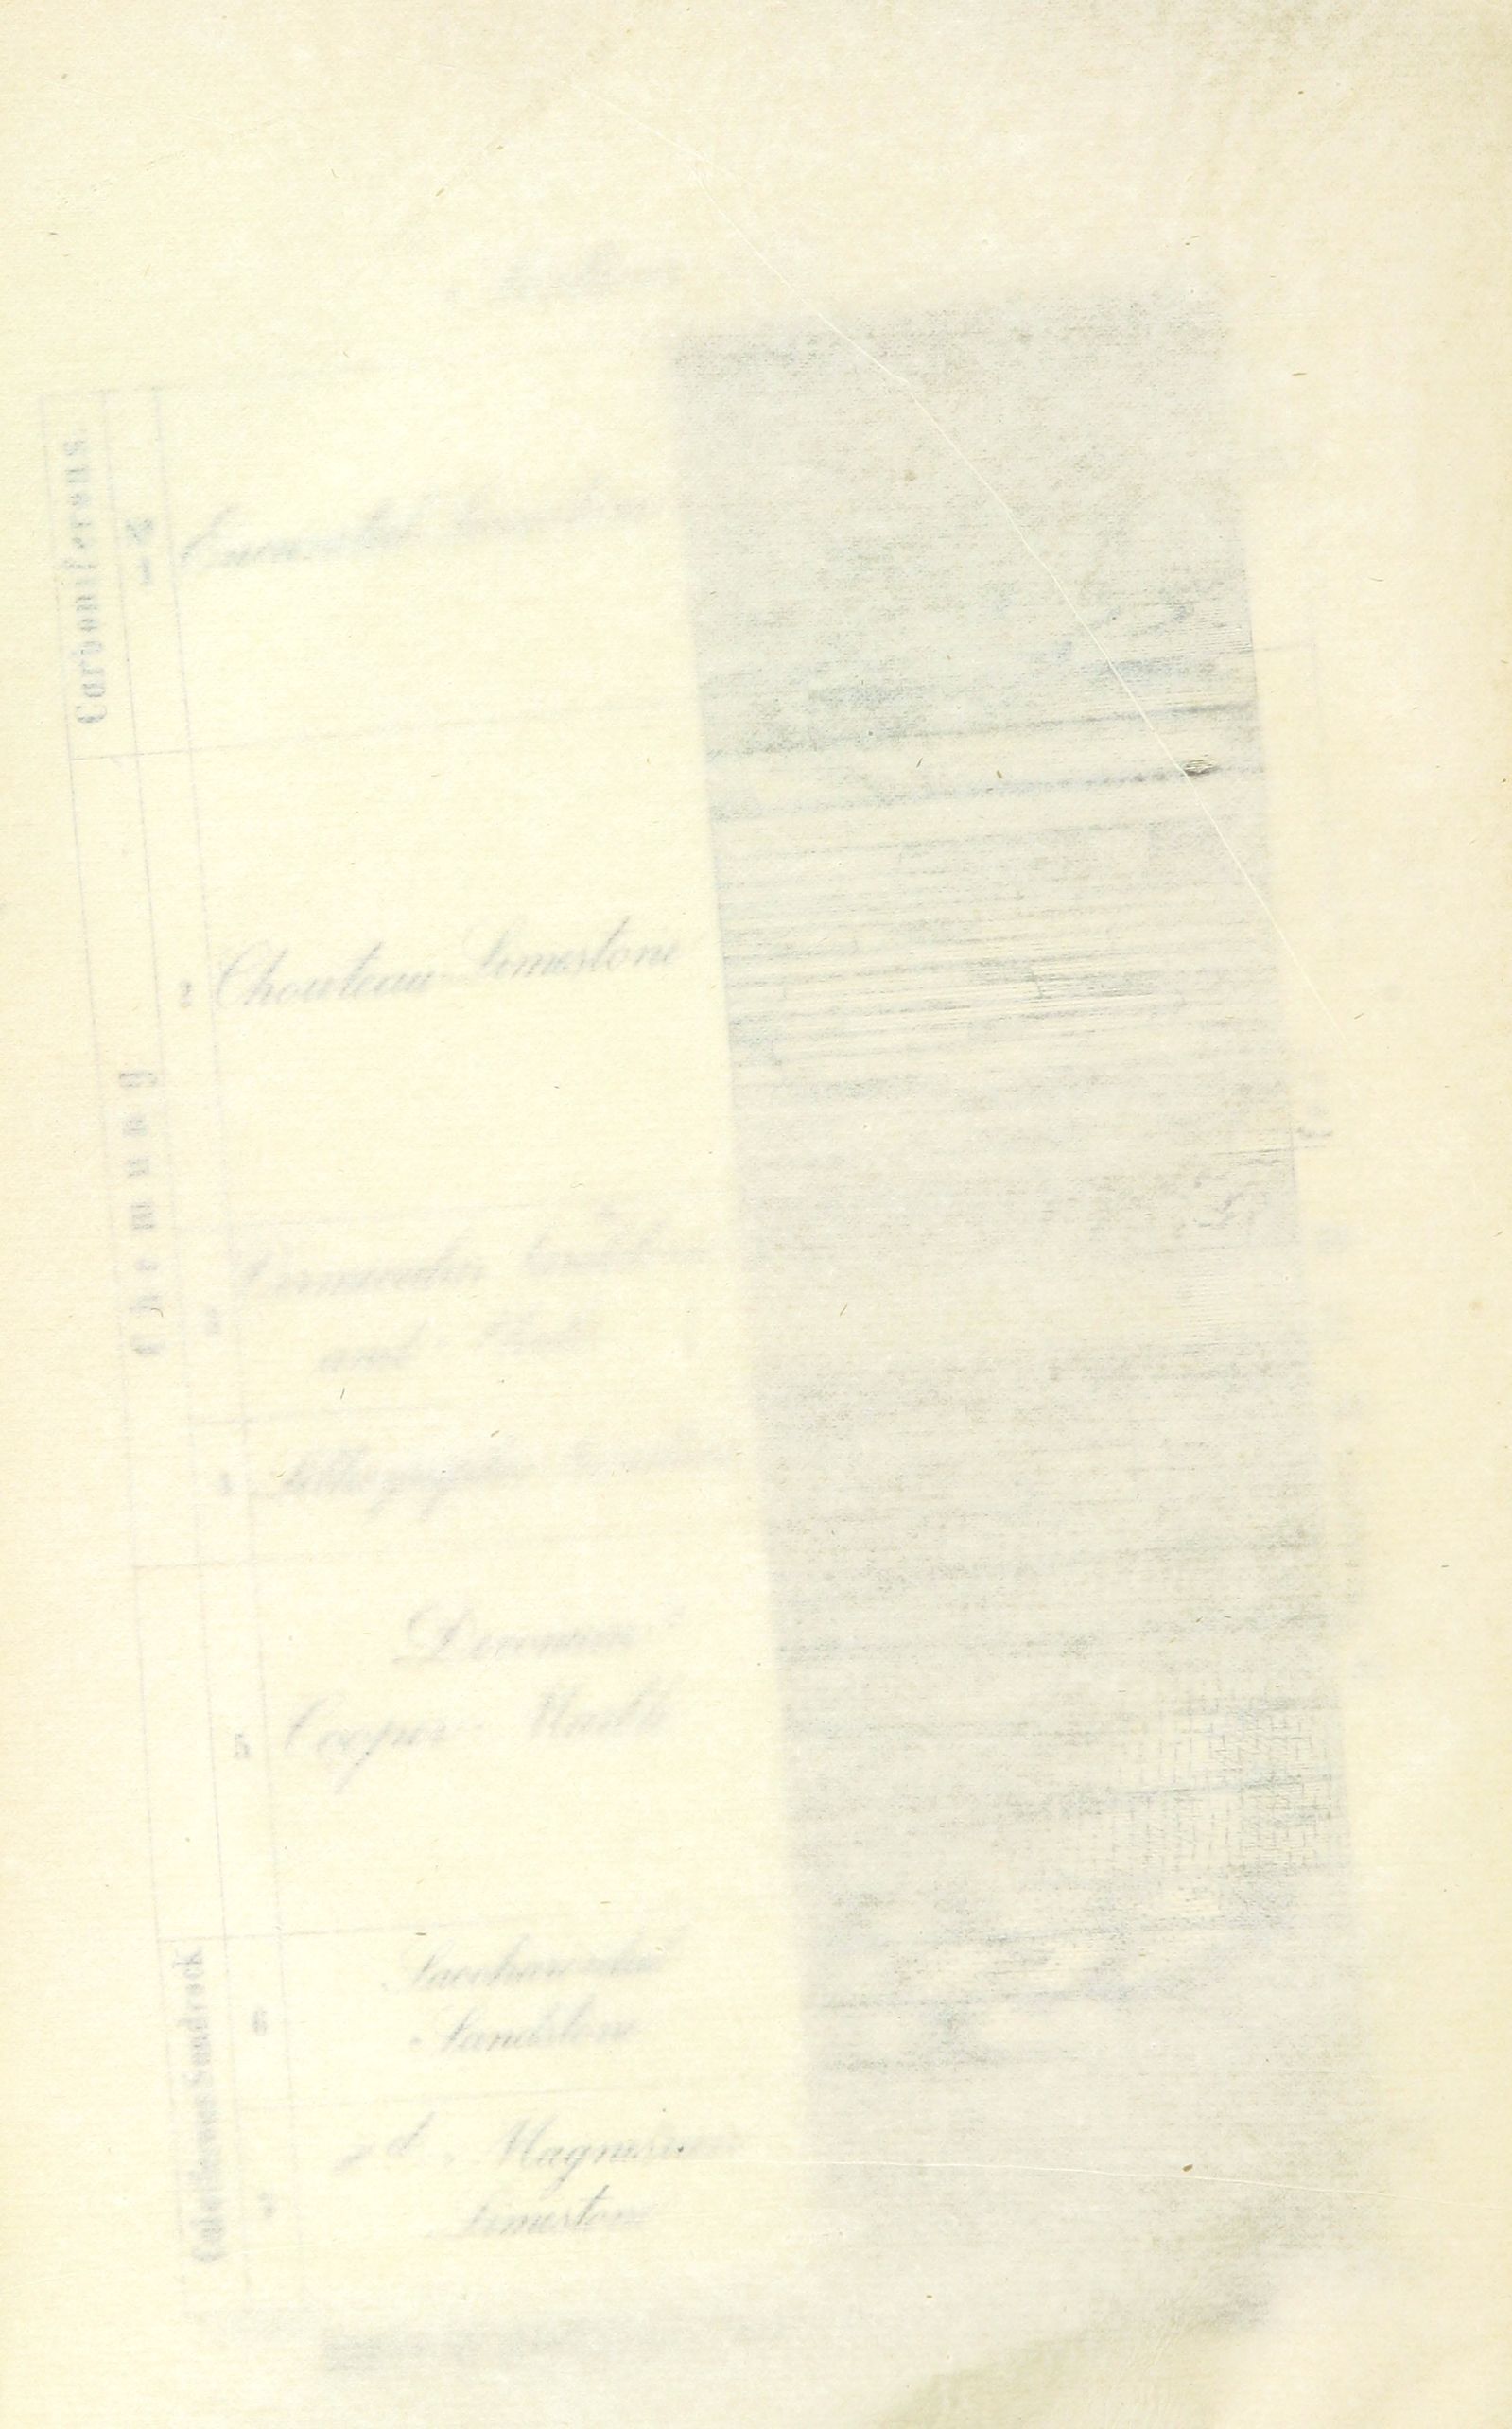 Carboniferous
Encrinital Limestone
Chemung
2 Chouteau Limestone
Vermicular Sandstone
and Shale
1 Lithographic Limestone
Devonian
5 Cooper Marble
Calciferous Sandrock
Saccharoidal
Sandstone
2d Magnesian
Limestone